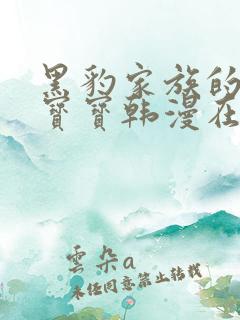 黑豹家族的
寶寶韩漫在
雲朵a
未经同意禁止转载